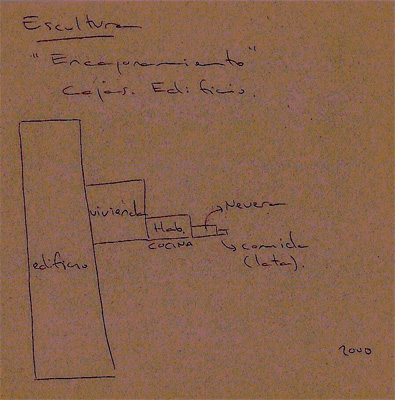 Escultura
"Encajonamiento"
Cajas. Edificio.
vivienda
Nevera
Hab.
COCINA
comida
(lata).
edificio
2000